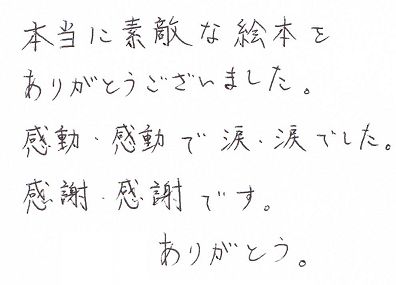 本当に素敵な絵本を
ありがとうございました。
感動・感動で涙・涙でした。
感謝・感謝です。
ありがとう。